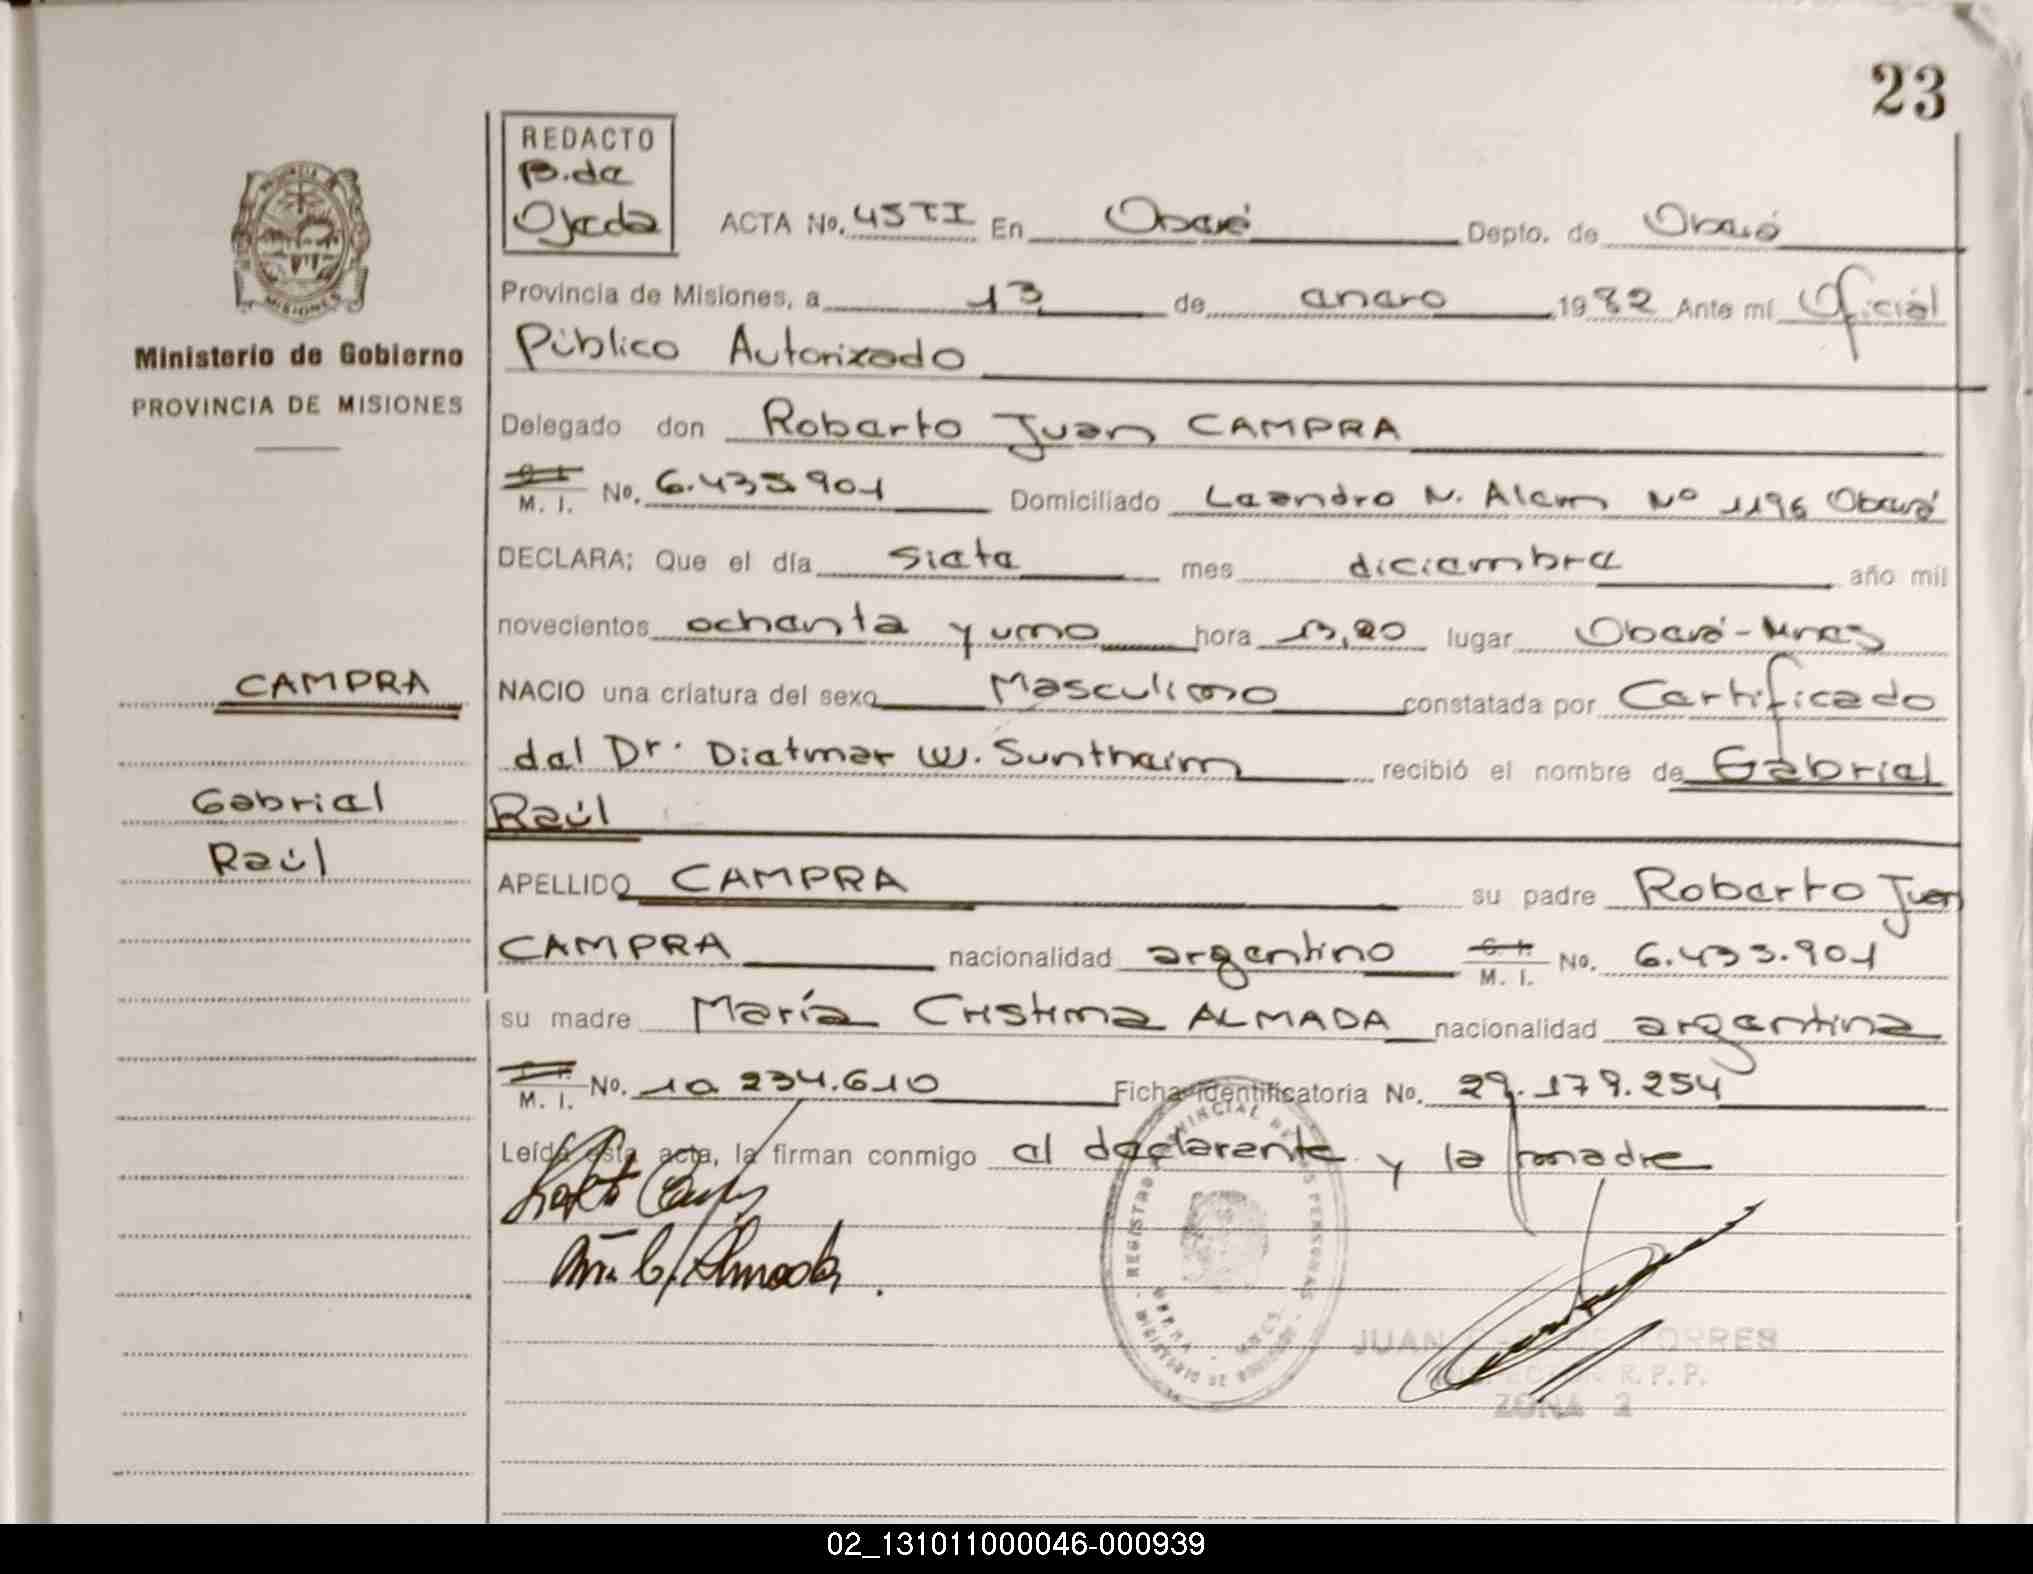 23
REDACTO
B. de
Ojeda
ACTA No. 45TI En Oberá Depto. de Oberá
Provincia de Misiones, a 13 de enero 1982 Ante mí Oficial
Público Autorizado
Delegado don Roberto Juan CAMPRA
M. I. No. 6.433.901 Domiciliado Leandro N. Alem Nº 1196 Oberá
DECLARA; Que el día siete mes diciembre año mil
novecientos ochenta y uno hora 13,20 lugar Oberá-Mnes
NACIO una criatura del sexo Masculino constatada por Certificado
del Dr. Dietmar W. Suntheim recibió el nombre de Gabriel
Raúl
APELLIDO CAMPRA su padre Roberto Juan
CAMPRA nacionalidad argentino M. I. No. 6.433.901
su madre María Cristina ALMADA nacionalidad argentina
M. I. No. 10.234.610 Ficha identificatoria No. 29.179.254
Leída esta acta, la firman conmigo el declarante y la madre
PROVINCIA
MISIONES
Ministerio de Gobierno
PROVINCIA DE MISIONES
CAMPRA
Gabriel
Raúl
Mª. C. Almada.
REGISTRO PROVINCIAL DE LAS PERSONAS
JUAN TORRES
INSPECTOR R.P.P.
ZONA 2
02_131011000046-000939